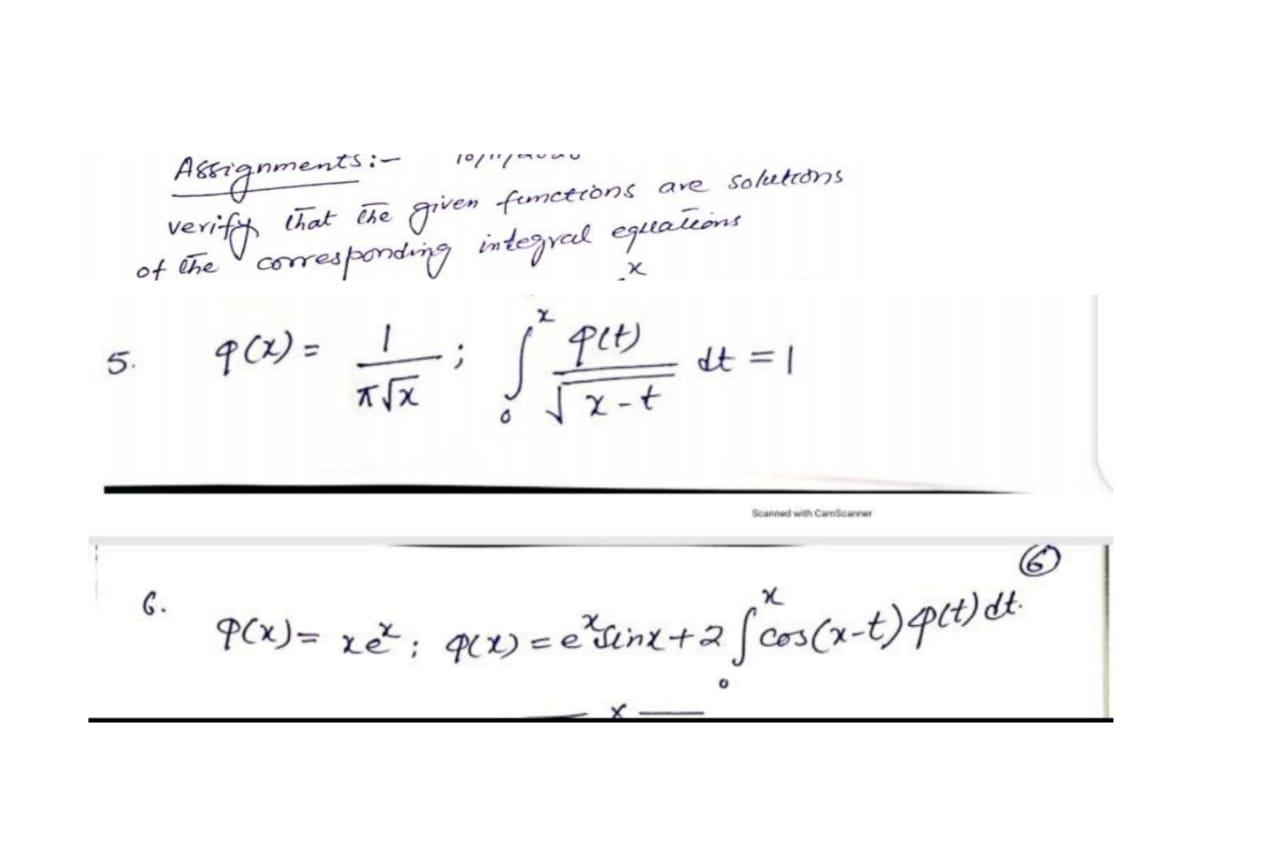 Assignments:-
verify that the given functions are solutions
of the corresponding integral equations
x
5. φ(x) = 1/(π√x) ; ∫₀ˣ φ(t)/√(x-t) dt = 1
Scanned with CamScanner
6
6. φ(x) = xeˣ ; φ(x) = eˣ sinx + 2 ∫₀ˣ cos(x-t) φ(t) dt.
— x —